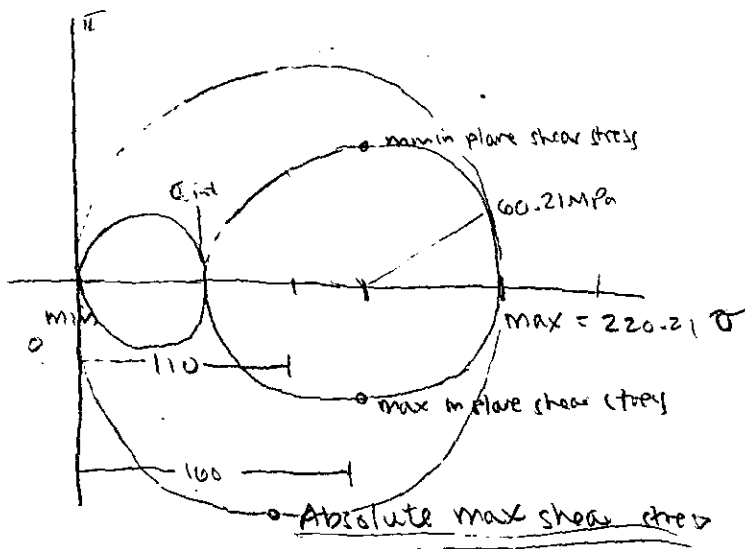 min in plane shear stress
σ int
60.21 MPa
min
max = 220.21 σ
0
110
max in plane shear stress
160
Absolute max shear stress